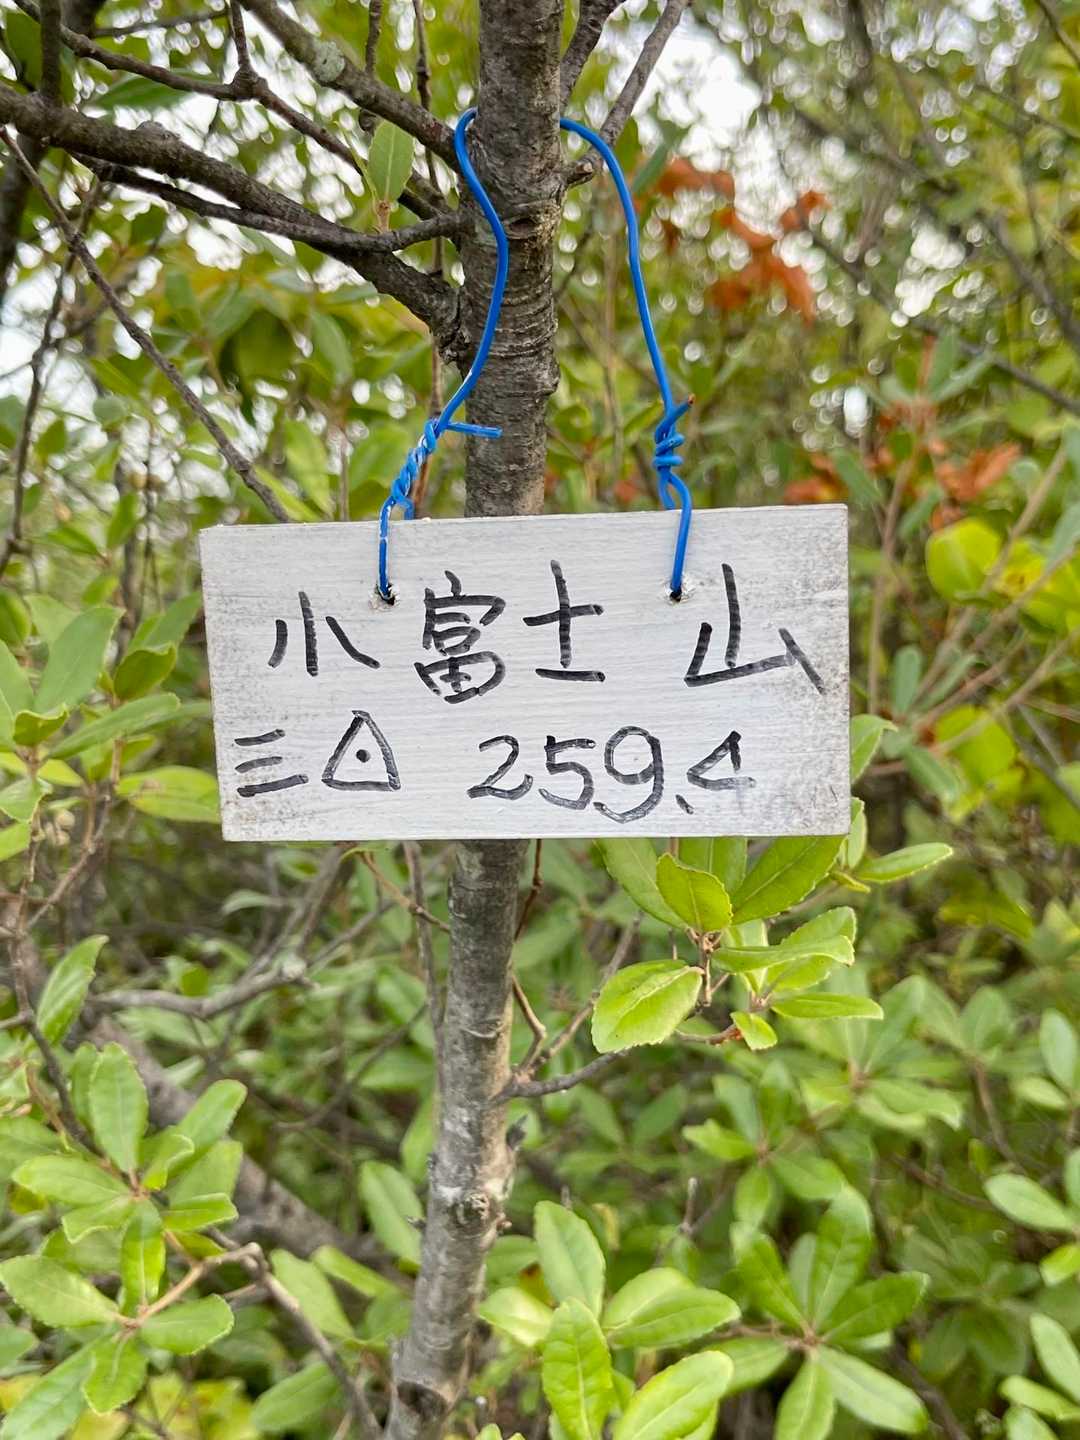 小富士山
三△ 259.4